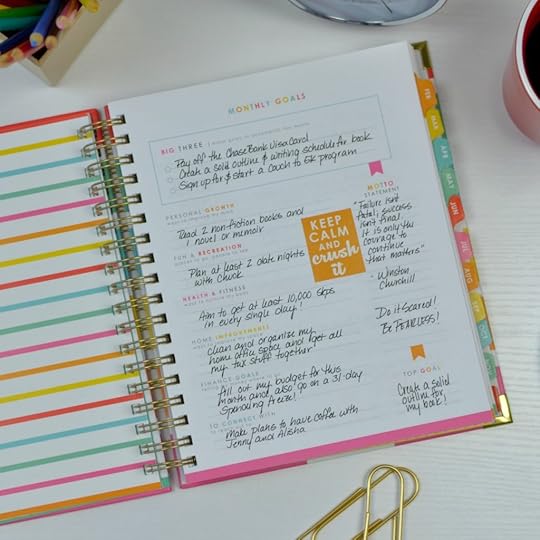 MONTHLY GOALS
BIG THREE
Pay off the Chase Bank Visa Card
Create a solid outline & writing schedule for book
Sign up for & start a Couch to 5k program
PERSONAL GROWTH
Read 2 non-fiction books and
1 novel or memoir
FUN & RECREATION
Plan at least 2 date nights
with Chuck
HEALTH & FITNESS
Aim to get at least 10,000 steps
in every single day!
HOME IMPROVEMENTS
clean and organize my
home office space and get all
my tax stuff together
FINANCE GOALS
fill out my budget for this
month and also go on a 31-day
Spending freeze!
TO CONNECT WITH
Make plans to have coffee with
Jenny and Alisha
KEEP
CALM
AND
crush
it
MOTTO
STATEMENT
"Failure isn't
fatal; success
isn't final.
It is only the
courage to
continue
that matters."
- Winston
Churchill
Do it Scared!
Be FEARLESS!
TOP GOAL
Create a solid
outline for
my book!
FEB
MAR
APR
MAY
JUN
JUL
AUG
SEP
OCT